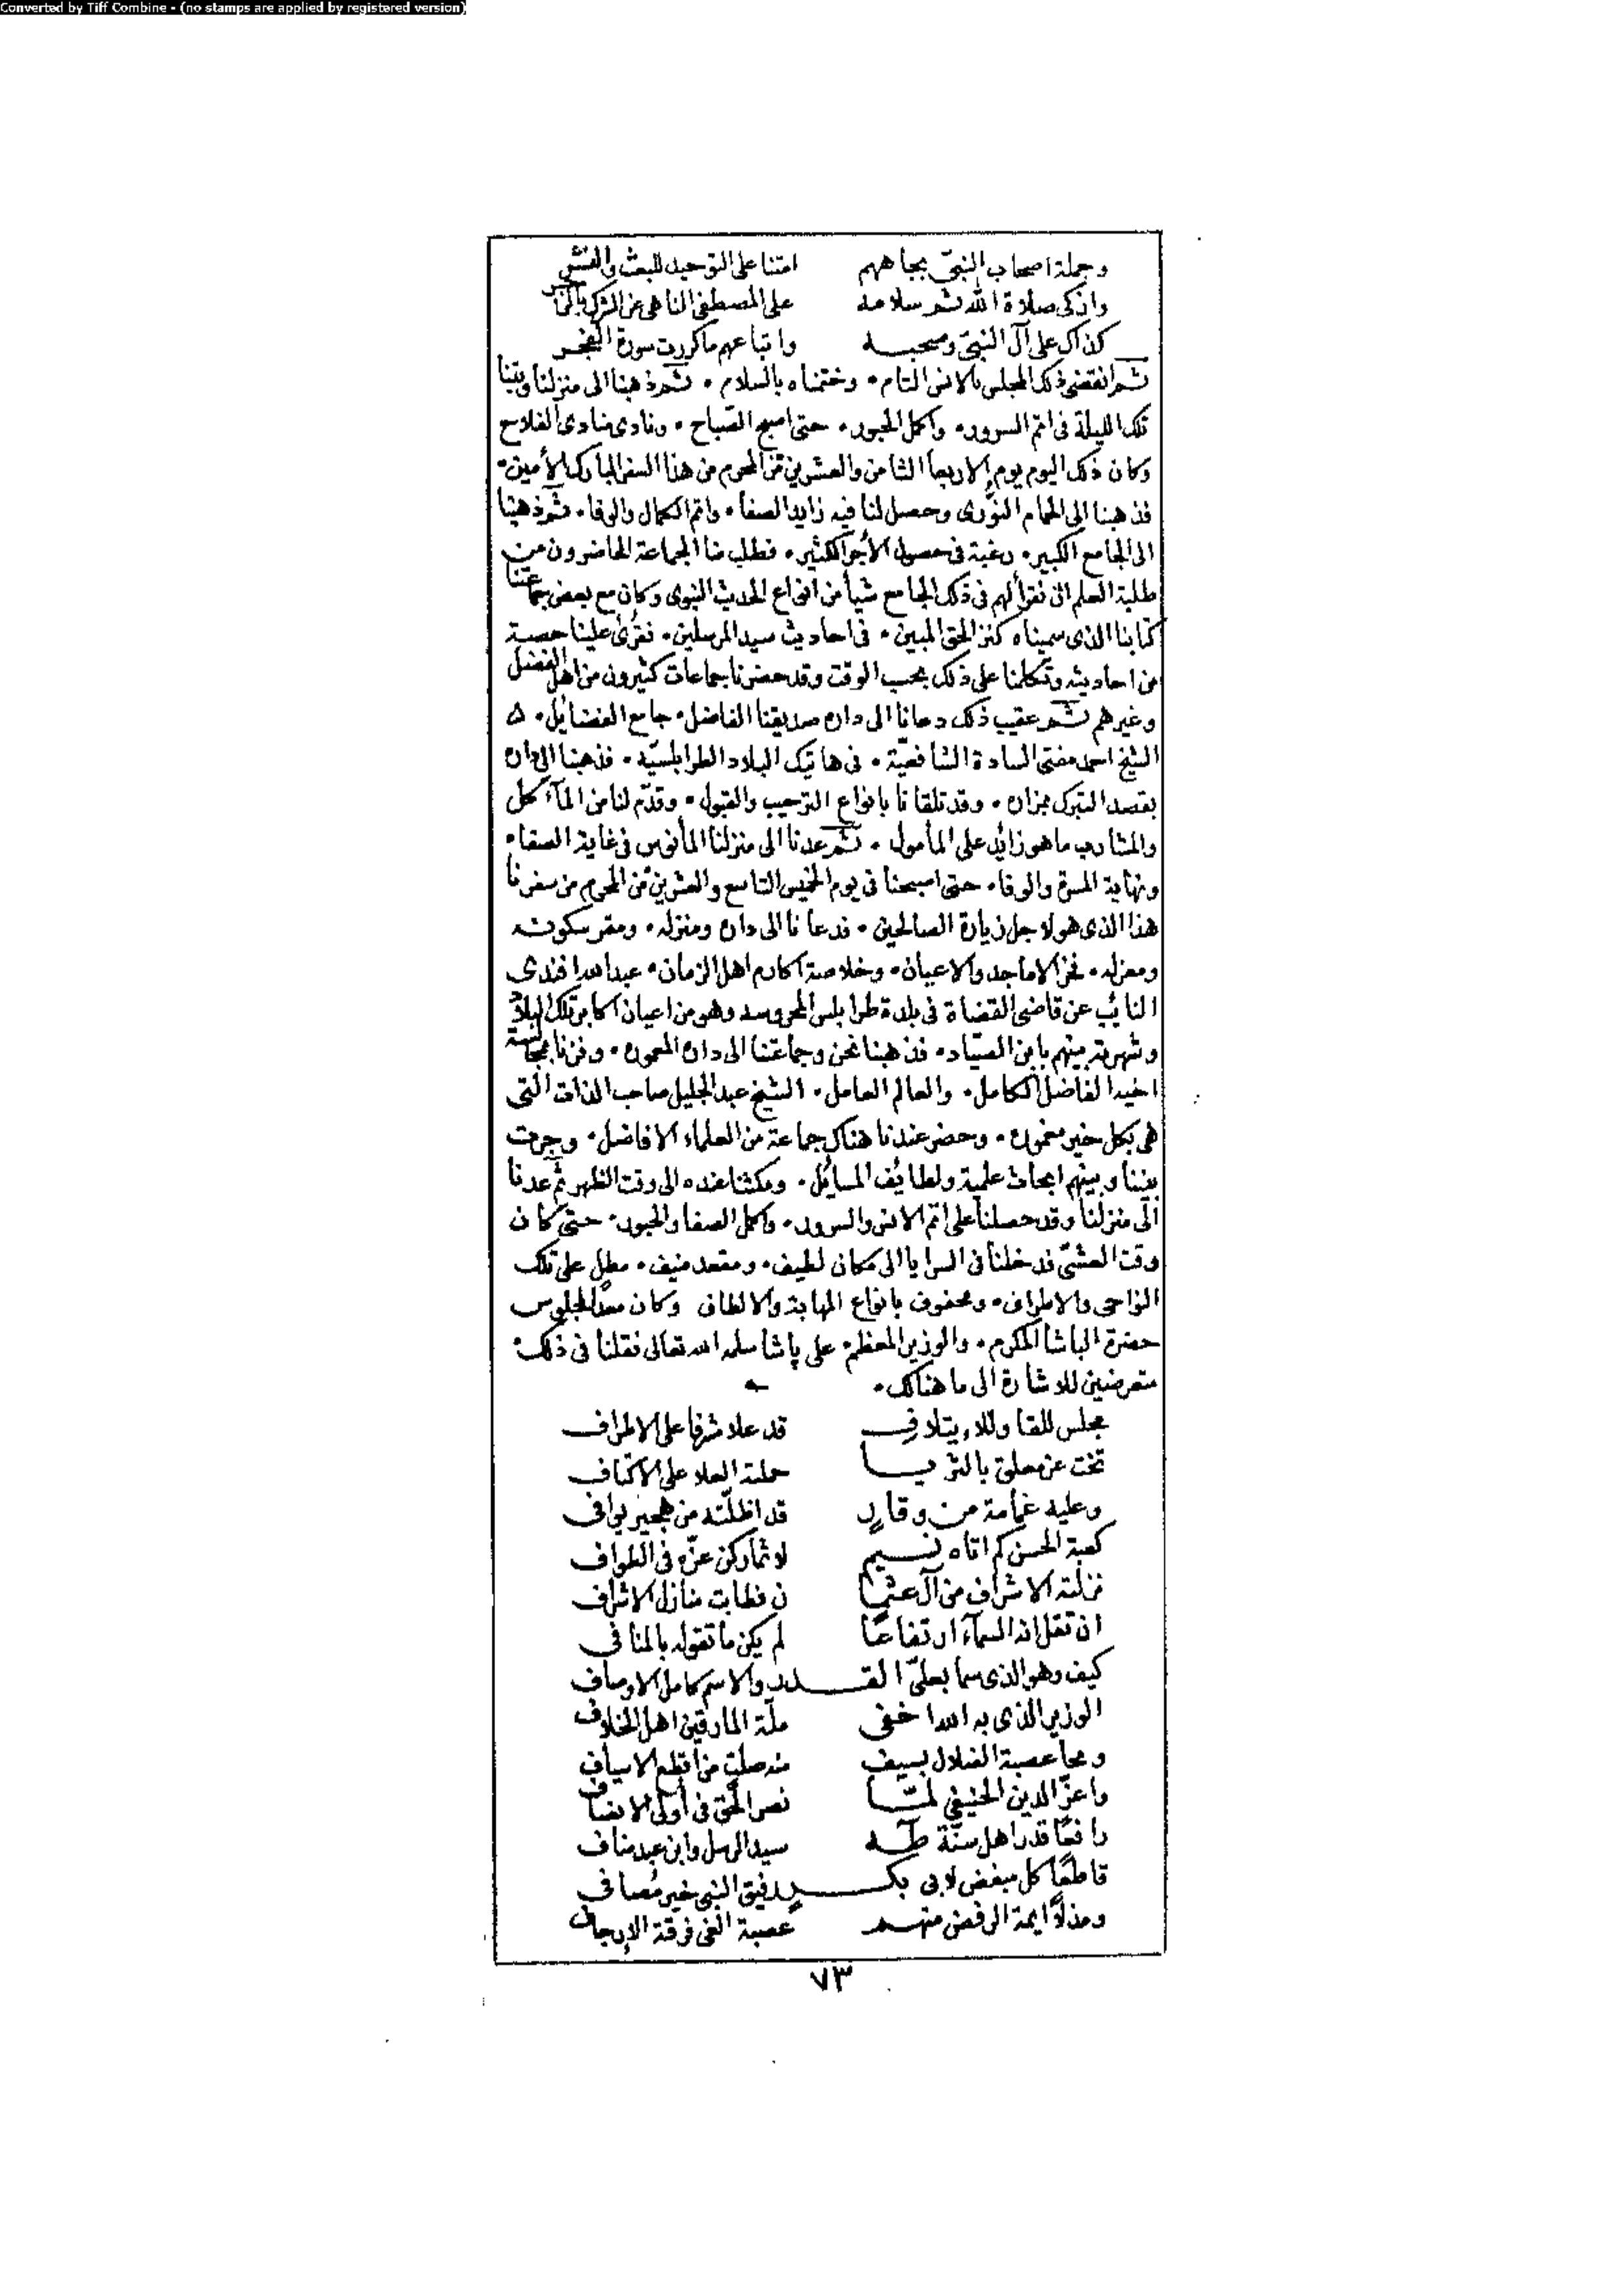 Converted by Tiff Combine - (no stamps are applied by registered version)
وجملة اصحاب النبيّ بجاههم امتنا على التوحيد للبعث والنشر
وازكى صلاة الله ثم سلامه على المصطفى الناهى عن الشرك
كذاك على آل النبيّ وصحبه واتباعهم ما كررت سورة الفجر
ثم انقضى ذلك المجلس بالانس التام • وختمناه بالسلام • ثم ذهبنا الى منزلنا وبتنا
تلك الليلة فى اتم السرور • واكمل الحبور • حتى اصبح الصّباح • ونادى منادى الفلاح
وكان ذلك اليوم يوم الاربعا الثامن والعشرين من المحرم من هذا السفر المبارك الأمين •
فذهبنا الى الحمام النوّرى وحصل لنا فيه زايد الصفا • واتم الكمال والوفا • ثم ذهبنا
الى الجامع الكبير • رغبة فى حصول الأجر الكثير • فطلب منا الجماعة الحاضرون من
طلبة العلم ان نقرأ لهم فى ذلك الجامع شيأ من انواع الحديث النبوى وكان مع بعض جماعتنا
كتابنا الذى سميناه كنز الحق المبين • فى احاديث سيد المرسلين • فقرئ علينا حصة
من احاديثه وتكلمنا على ذلك بحسب الوقت وقد حضرنا جماعات كثيرون من اهل الفضل
وغيرهم ثم عقيب ذلك دعانا الى داره صديقنا الفاضل • جامع الفضائل • ه
الشيخ احمد مفتى السادة الشافعيّة • فى هاتيك البلاد الطرابلسيّه • فذهبنا الى داره
بقصد التبرك بمزاره • وقد تلقانا بانواع الترحيب والقبول • وقدّم لنا من المآكل
والمشارب ما هو زائد على المأمول • ثم عدنا الى منزلنا المأنوس فى غاية الصفا •
ونهاية المسرة والوفا • حتى اصبحنا فى يوم الخميس التاسع والعشرين من المحرم من سفرنا
هذا الذى هو لاجل زيارة الصالحين • فدعانا الى داره ومنزله • ومقر سكونه
ومعزله • فخر الاماجد والاعيان • وخلاصة اكارم اهل الزمان • عبد الله افندى
النائب عن قاضى القضاة فى بلدة طرابلس المحروسه وهو من اعيان اكابر تلك البلاد
وشهرته بينهم بابن الصيّاد • فذهبنا نحن وجماعتنا الى داره المعموره • وفزنا بمجالسة
اخيه الفاضل الكامل • والعالم العامل • الشيخ عبد الجليل صاحب الذات التى
هى بكل خير مغموره • وحضر عندنا هناك جماعة من العلماء الافاضل • وجرت
بيننا وبينهم ابحاث علمية ولطائف المسائل • ومكثنا عنده الى وقت الظهر ثم عدنا
الى منزلنا وقد حصلنا على اتم الانس والسرور • واكمل الصفا والحبور • حتى كان
وقت العشىّ فدخلنا فى السرايا الى مكان لطيف • ومقعد منيف • مطل على تلك
النواحى والاطراف • ومحفوف بانواع المهابة والالطاف وكان معدّا لجلوس
حضرة الباشا المكرم • والوزير المعظم • على پاشا سلمه الله تعالى فقلنا فى ذلك •
متعرضين للاشارة الى ما هنالك •
مجلس للقا وللايتلاف قد علا مشرفا على الاطراف
تخت عز معلق بالثريا حملته العلا على الاكتاف
وعليه غمامة من وقار قد اظلّته من هجير يوافى
كعبة الحسن كم اتاه نسيم لاثما ركن عزّه فى الطواف
نزلته الاشراف من آل عثما ن فطابت منازل الاشراف
ان تقل انه السمآء ارتفاعًا لم يكن ما تقوله بالمنافى
كيف وهو الذى سما بعلىّ القدر والاسم كامل الاوصاف
الوزير الذى به الله اخفى ملّة المارقين اهل الخلاف
ومحا عصبة الضلال بسيف منه صلت من أقطع الاسياف
واعزّ الدين الحنيفى لمّا نصر الحق فى أولى الانصاف
رافعًا قدر اهل سنّة طه سيد الرسل وابن عبد مناف
قاطعًا كل مبغض لابى بكر رفيق النبى غير مُصافى
ومذلّا ايمة الرفض منهم عصبة الغى فرقة الإرجاف
٧٣